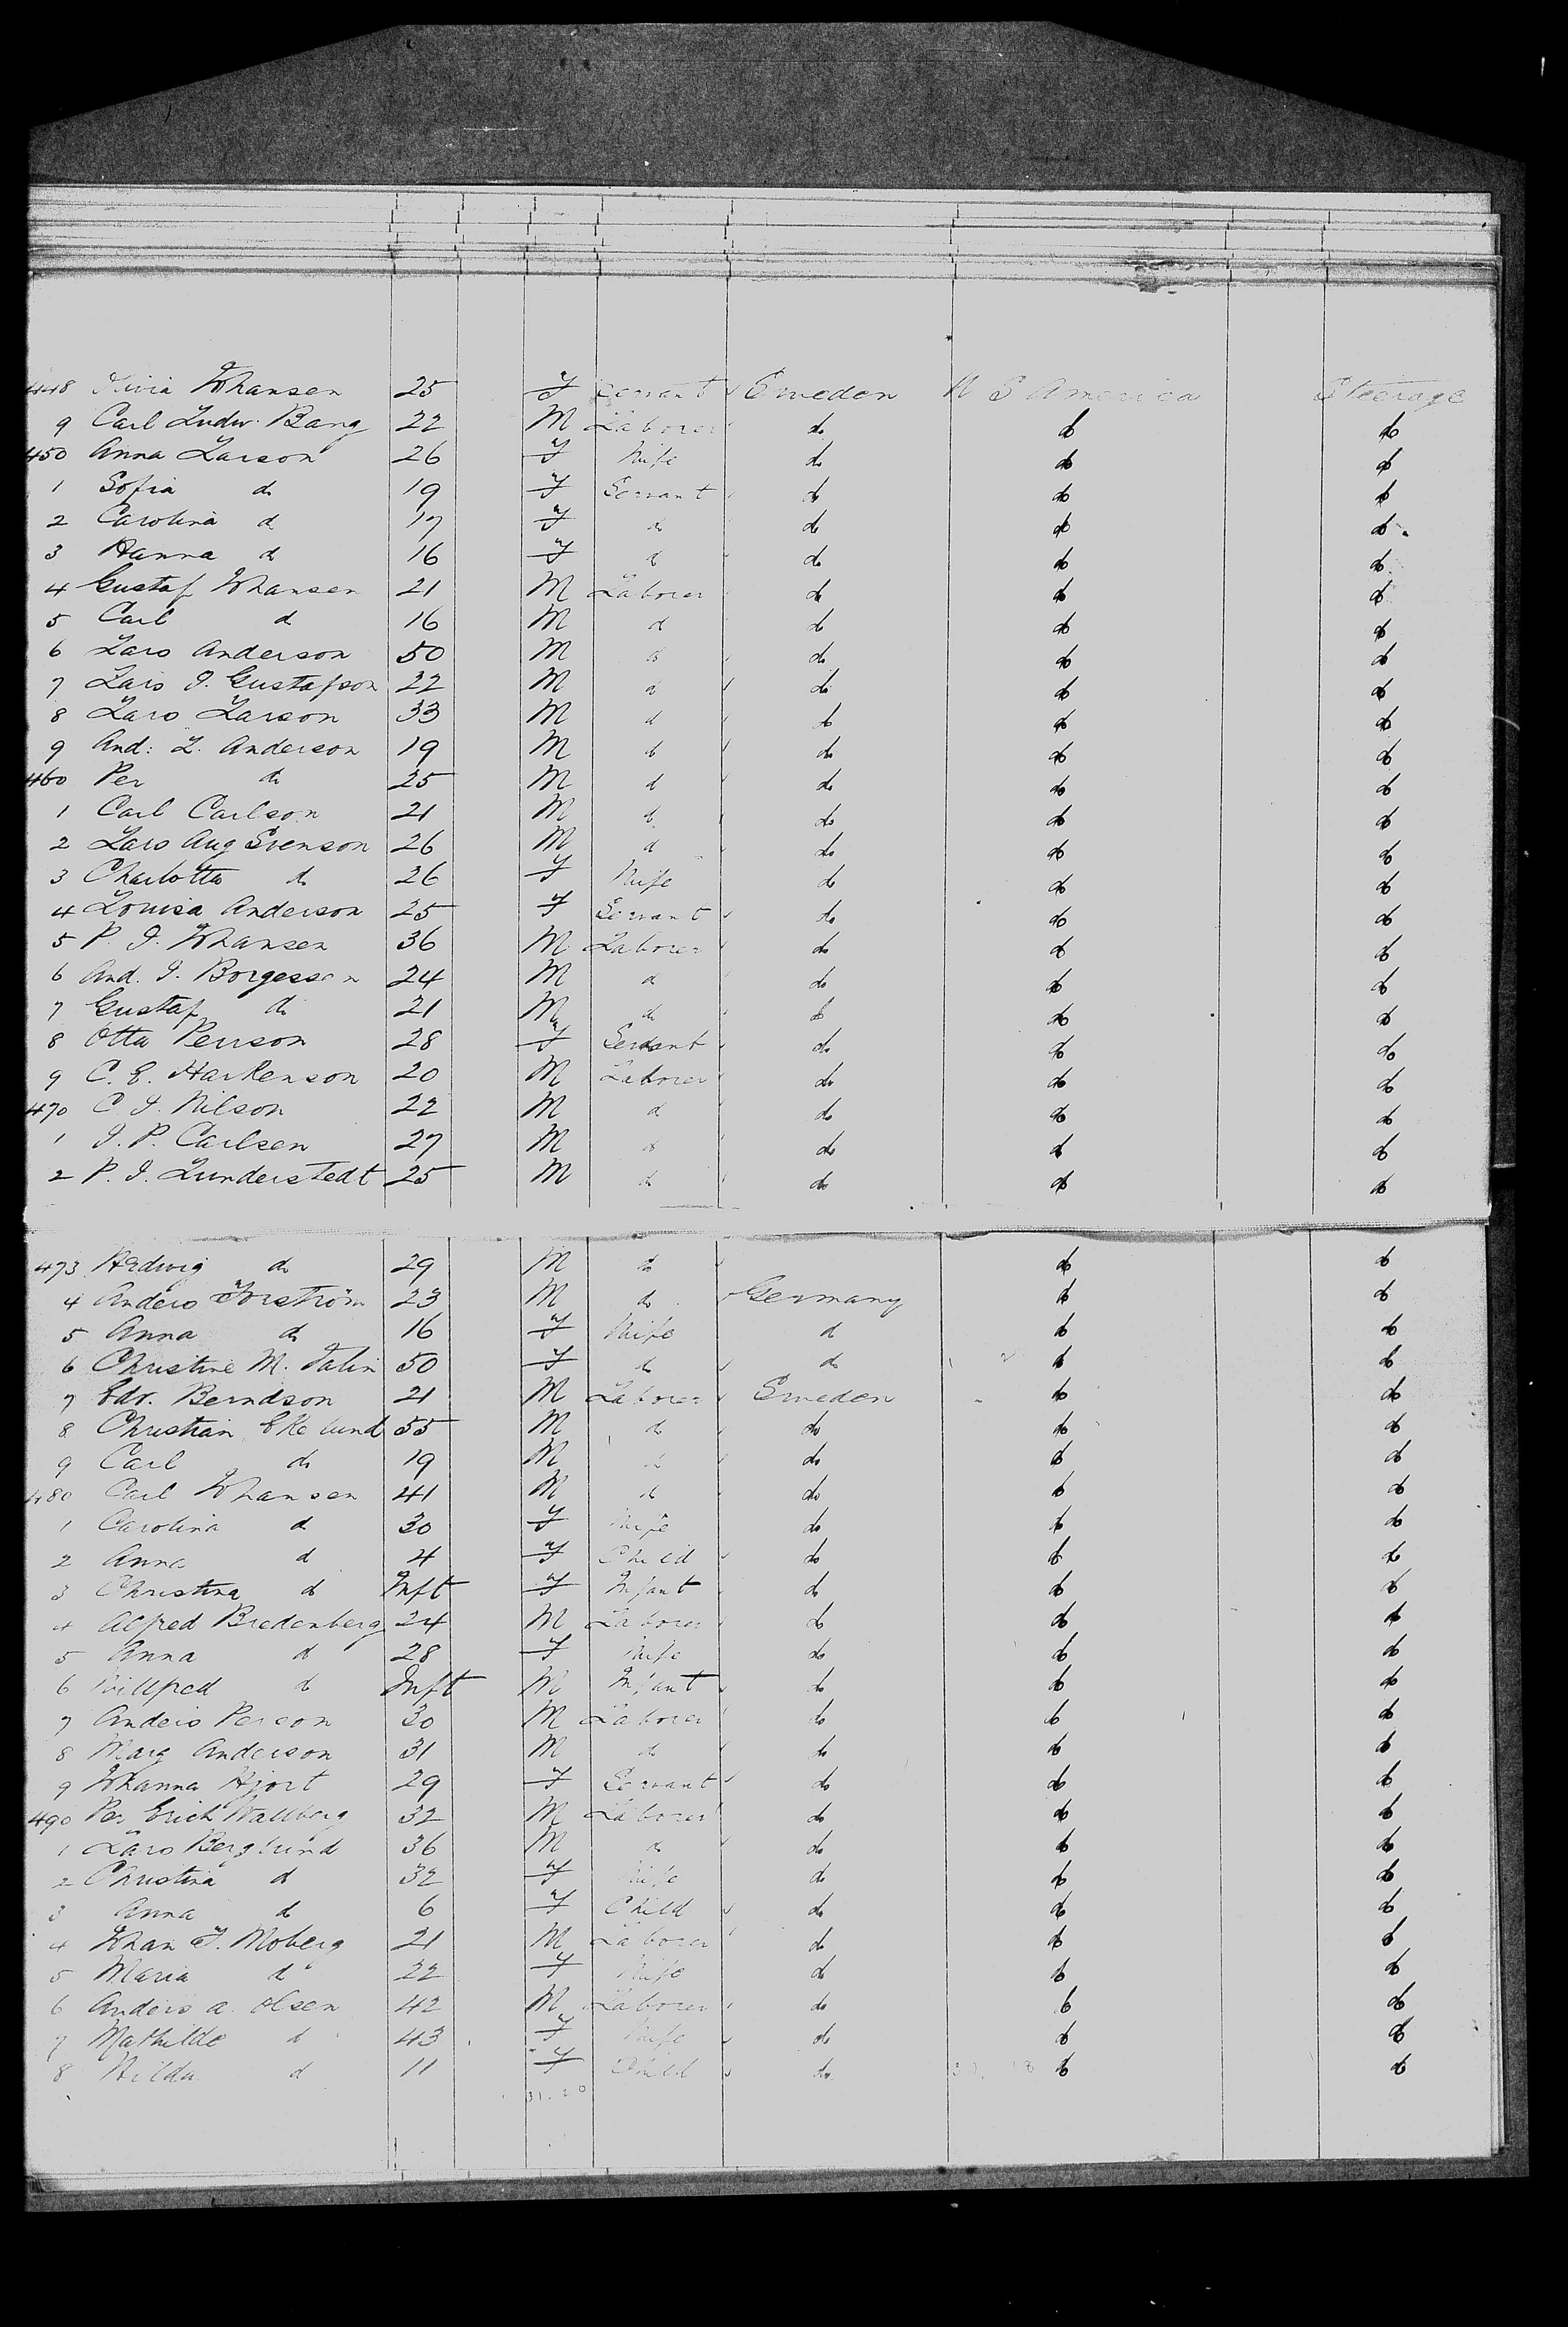 448 Olivia Johansen 25 F Servant Sweden U S America Steerage
9 Carl Ludw. Bang 22 M Laborer do do do
450 Anna Larson 26 F Wife do do do
1 Sofia do 19 F Servant do do do
2 Carolina do 17 F do do do do
3 Hanna do 16 F do do do do
4 Gustaf Johansen 21 M Laborer do do do
5 Carl do 16 M do do do do
6 Lars Anderson 50 M do do do do
7 Lars J. Gustafson 22 M do do do do
8 Lars Larson 33 M do do do do
9 And: L. Anderson 19 M do do do do
460 Per do 25 M do do do do
1 Carl Carlson 21 M do do do do
2 Lars Aug Svenson 26 M do do do do
3 Charlotta do 26 F Wife do do do
4 Louisa Anderson 25 F Servant do do do
5 P. J. Johansen 36 M Laborer do do do
6 And. J. Borgesson 24 M do do do do
7 Gustaf do 21 M do do do do
8 Otta Person 28 F Servant do do do
9 C. E. Harkenson 20 M Laborer do do do
470 C. J. Nilson 22 M do do do do
1 J. P. Carlsen 27 M do do do do
2 P. J. Lunderstedt 25 M do do do do
473 Hedwig do 29 M do do do
4 Anders Forström 23 M do Germany do do
5 Anna do 16 F Wife do do do
6 Christine M. 50 F do do do do
7 Edv. Berndson 21 M Laborer Sweden do do
8 Christian Ekelund 55 M do do do do
9 Carl do 19 M do do do do
480 Carl Johansen 41 M do do do do
1 Carolina do 30 F Wife do do do
2 Anna do 4 F Child do do do
3 Christina do Inft F Infant do do do
4 Alfred Bredenberg 24 M Laborer do do do
5 Anna do 28 F Wife do do do
6 Willfred do Inft M Infant do do do
7 Anders Person 30 M Laborer do do do
8 Marg Anderson 31 M do do do do
9 Johanna Hjort 29 F Servant do do do
490 Per Erich Wallberg 32 M Laborer do do do
1 Lars Berglund 36 M do do do do
2 Christina do 32 F Wife do do do
3 Anna do 6 F Child do do do
4 Johan J. Moberg 21 M Laborer do do do
5 Maria do 22 F Wife do do do
6 Anders A. Olsen 42 M Laborer do do do
7 Mathilde do 43 F Wife do do do
8 Hilda do 11 F Child do do do
31.20